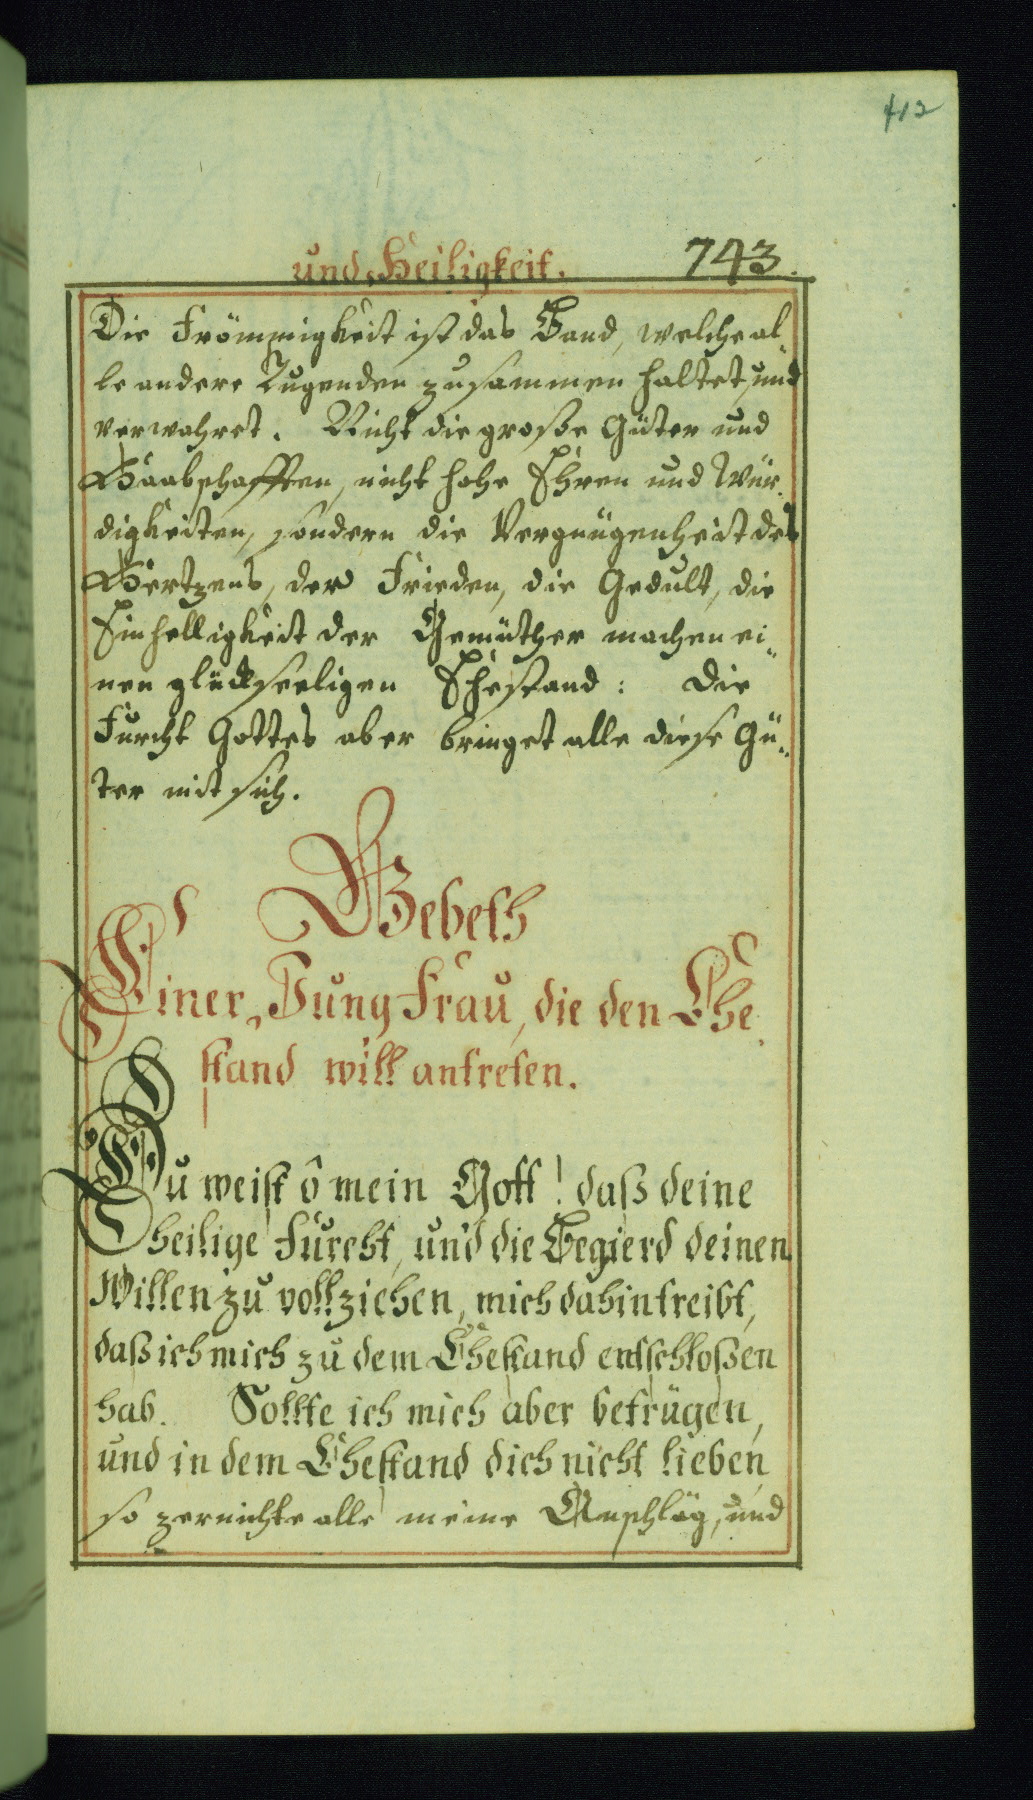 412
und Heiligkeit. 743.
Die Frömmigkeit ist das Band, welche al-
le andere Tugenden zusammen haltet, und
verwahret. Nicht die große Güter und
Haabschafften, nicht hohe Ehren und Wür-
digkeiten, sondern die Vergnügenheit des
Hertzens, der Frieden, die Gedult, die
Einhelligkeit der Gemüther machen ei-
nen glückseeligen Ehestand: Die
Furcht Gottes aber bringet alle diese Gü-
ter mit sich.
Gebeth
Einer Jung Frau, die den Ehe-
stand will antreten.
Du weist ô mein Gott! daß deine
heilige Furcht, und die Begierd deinen
Willen zu vollziehen, mich dahintreibt,
daß ich mich zu dem Ehestand entschloßen
hab. Sollte ich mich aber betrügen,
und in dem Ehestand dich nicht lieben
so zernichte alle meine Anschläg, und